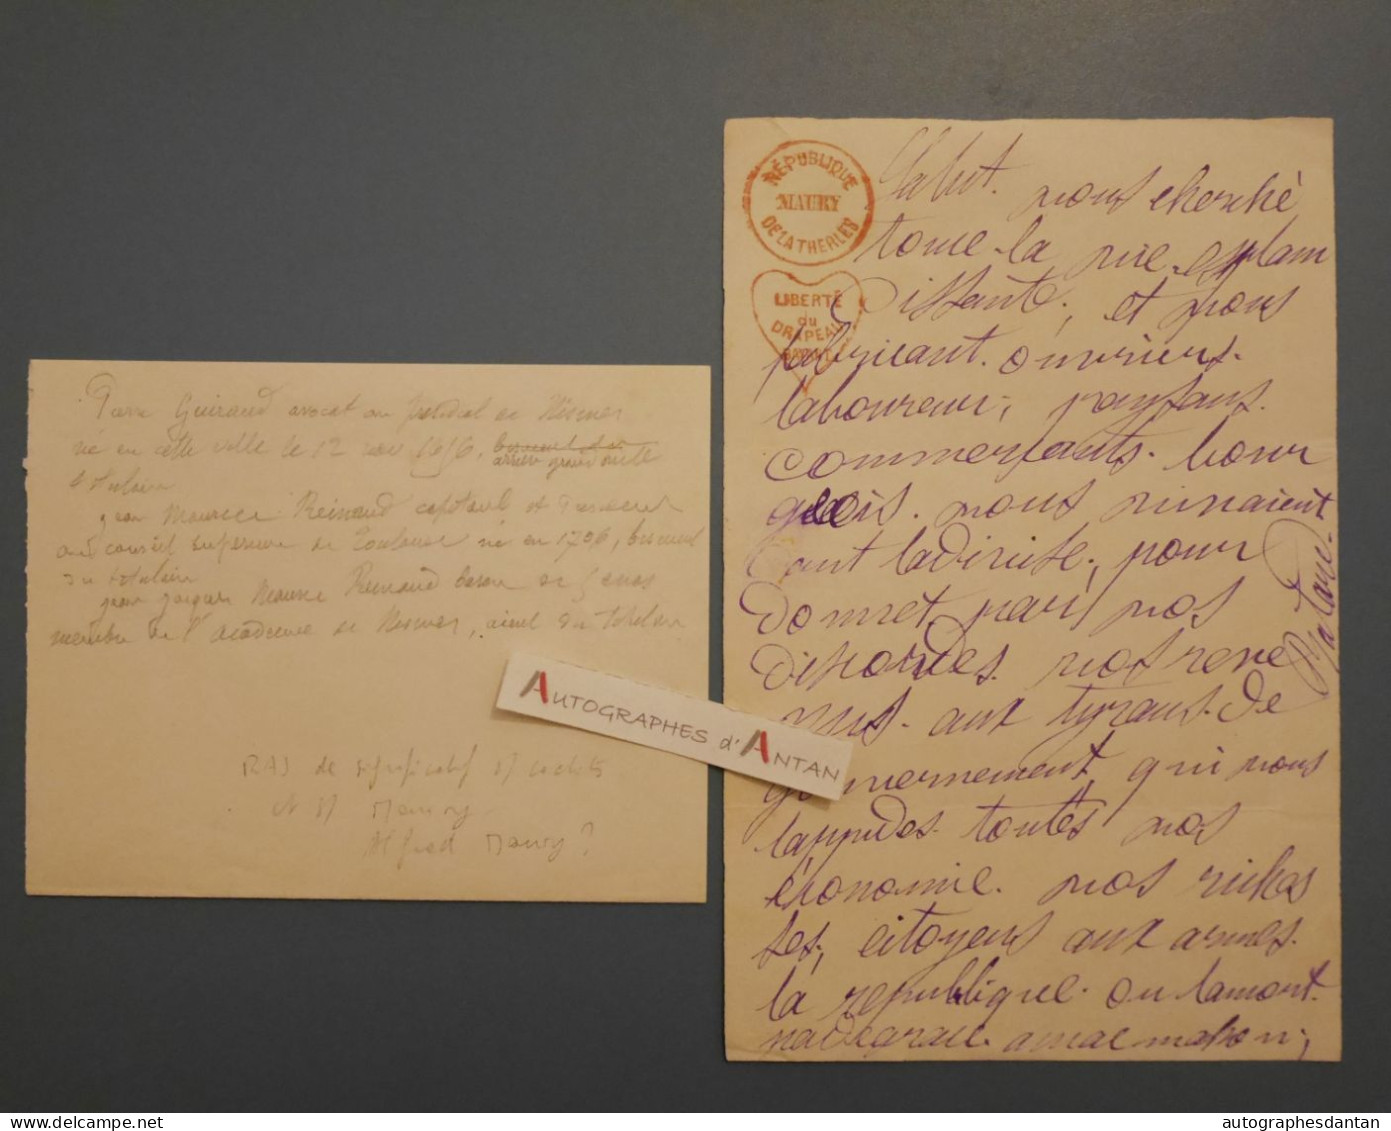 Pierre Guiraud avocat au présidial de Nismes
né en cette ville le 12 nov 1656,
arrière grand oncle
du titulaire
Jean Maurice Reinaud capitoul et
au conseil supérieur de Toulouse né en 1706, bisaieul
du titulaire
Jean Jacques Maurice Reinaud baron de Genas
membre de l'académie de Nismes, aieul du titulaire
RAS de significatif s/ cachets
Maury
Alfred Maury ?
AUTOGRAPHES d'ANTAN
RÉPUBLIQUE
MAURY
DE LA THERLES
LIBERTÉ
du
DRAPEAU
Salut. nous cherché
tome la rue esplam
dissante, et nous
fabricant. ouvriers.
laboureur, paysans.
commersants. bour
geois. nous runaient
tant ladivise, pour
donnet par nos
discordes nos reve
nus. aux tyrans. de
gouvernement, qui nous
lappides toutes nos
économie. nos riches
ses, citoyens aux armes.
la republique. ou lamort.
padegrace amacmahon,